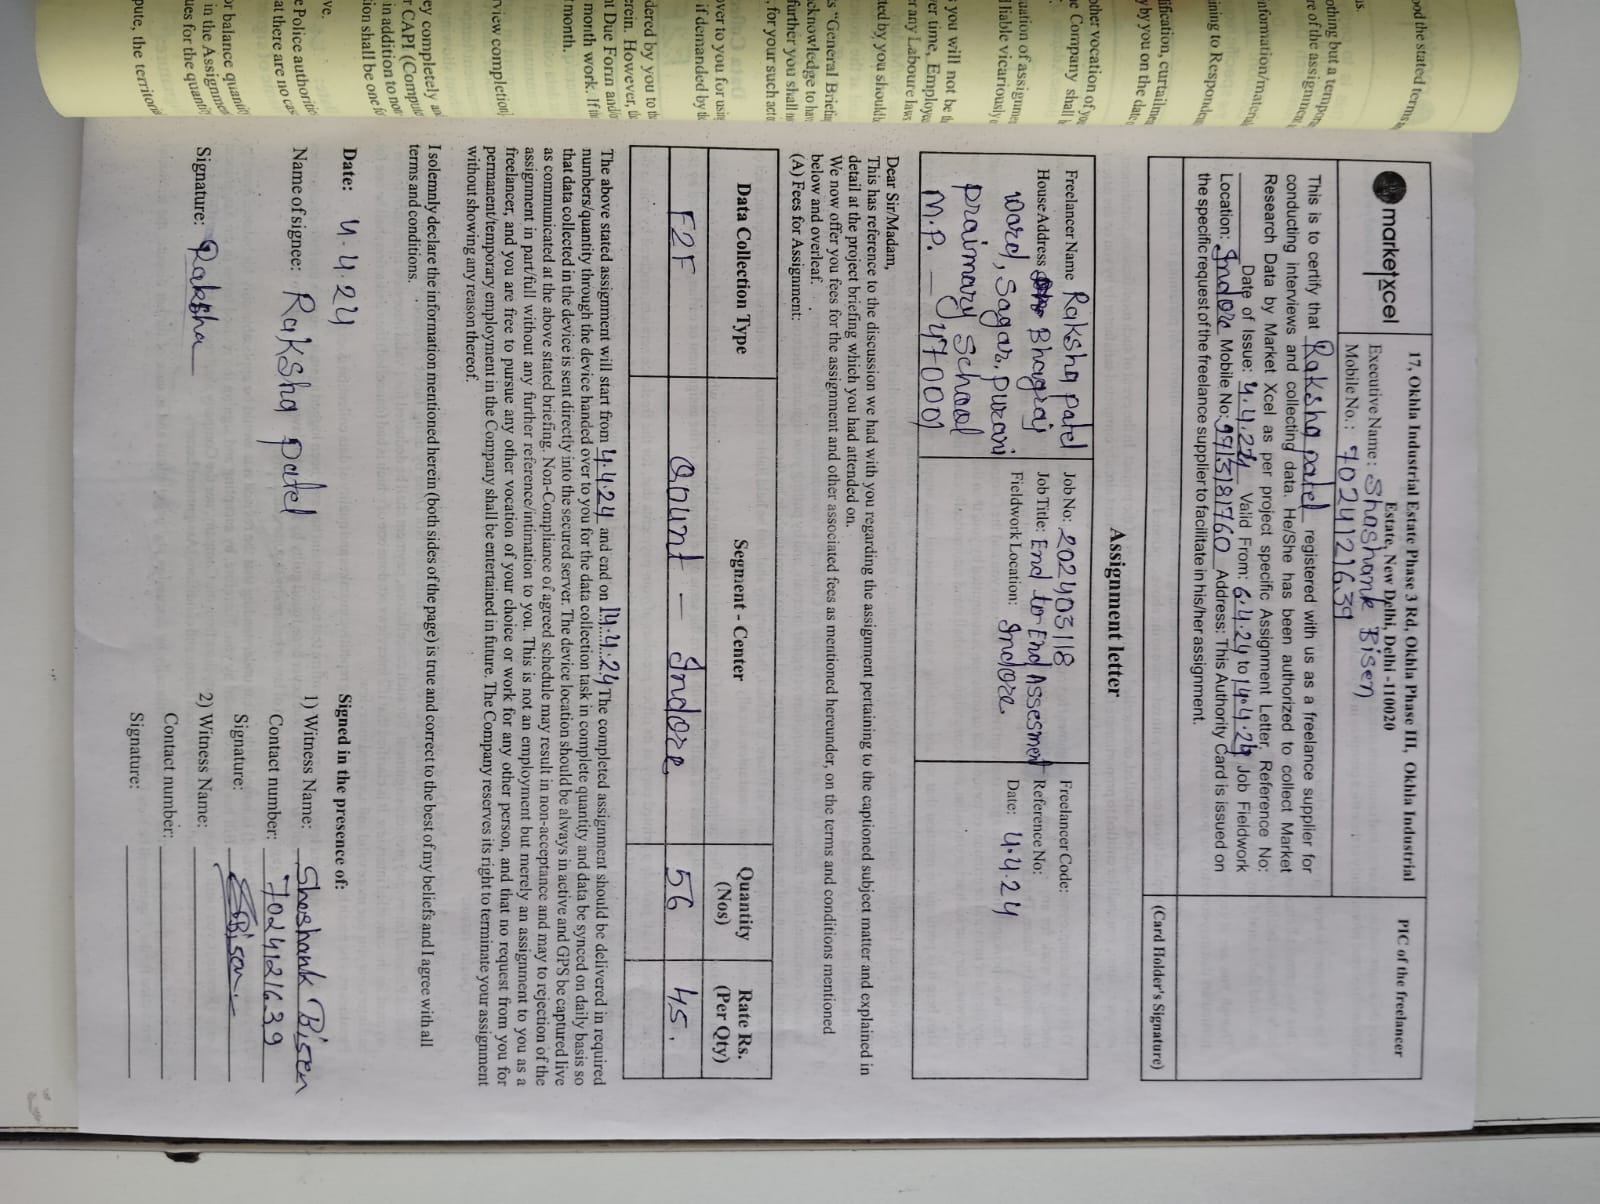 marketxcel
17, Okhla Industrial Estate Phase 3 Rd, Okhla Phase III, Okhla Industrial
Estate, New Delhi, Delhi -110020
Executive Name: Shashank Bisen
Mobile No.: 7024121639
PIC of the freelancer
This is to certify that Raksha patel registered with us as a freelance supplier for
conducting interviews and collecting data. He/She has been authorized to collect Market
Research Data by Market Xcel as per project specific Assignment Letter, Reference No:
Date of Issue: 4.4.224 Valid From: 6.4.24 to 14.4.24 Job Fieldwork
Location: Indore Mobile No: Address: This Authority Card is issued on
the specific request of the freelance supplier to facilitate in his/her assignment.
(Card Holder's Signature)
Assignment letter
Freelancer Name Raksha patel
House Address Bhagraj
ward, Sagar, purani
praimary School
M.P. - 47000
Job No: 202403118
Job Title: End to End Assesment
Fieldwork Location: Indore
Freelancer Code:
Reference No:
Date: 4.4.24
Dear Sir/Madam,
This has reference to the discussion we had with you regarding the assignment pertaining to the captioned subject matter and explained in
detail at the project briefing which you had attended on.
We now offer you fees for the assignment and other associated fees as mentioned hereunder, on the terms and conditions mentioned
below and overleaf.
(A) Fees for Assignment:
Data Collection Type Segment - Center Quantity (Nos) Rate Rs. (Per Qty)
F2F Qount - Indore 56 45.
The above stated assignment will start from 4.4.24 and end on 14.4.24 The completed assignment should be delivered in required
numbers/quantity through the device handed over to you for the data collection task in complete quantity and data be synced on daily basis so
that data collected in the device is sent directly into the secured server. The device location should be always in active and GPS be captured live
as communicated at the above stated briefing. Non-Compliance of agreed schedule may result in non-acceptance and may to rejection of the
assignment in part/full without any further reference/intimation to you. This is not an employment but merely an assignment to you as a
freelancer, and you are free to pursue any other vocation of your choice or work for any other person, and that no request from you for
permanent/temporary employment in the Company shall be entertained in future. The Company reserves its right to terminate your assignment
without showing any reason thereof.
I solemnly declare the information mentioned herein (both sides of the page) is true and correct to the best of my beliefs and I agree with all
terms and conditions.
Date: 4.4.24
Name of signee: Raksha patel
Signature: Raksha
Signed in the presence of:
1) Witness Name: Shashank Bisen
Contact number: 7024121639
Signature: Bisen
2) Witness Name:
Contact number:
Signature: